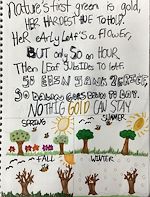 Nature's first green is gold,
HER HARDEST HUE TO HOLD.
HER early leaf's a flower,
BUT only SO an HOUR
Then leaf subsides to leaf.
SO EDEN SANK TO GRIEF,
SO DOWN GOES DOWN TO DAY.
NOTHIG GOLD CAN STAY
SPRING
SUMMER
FALL
WINTER